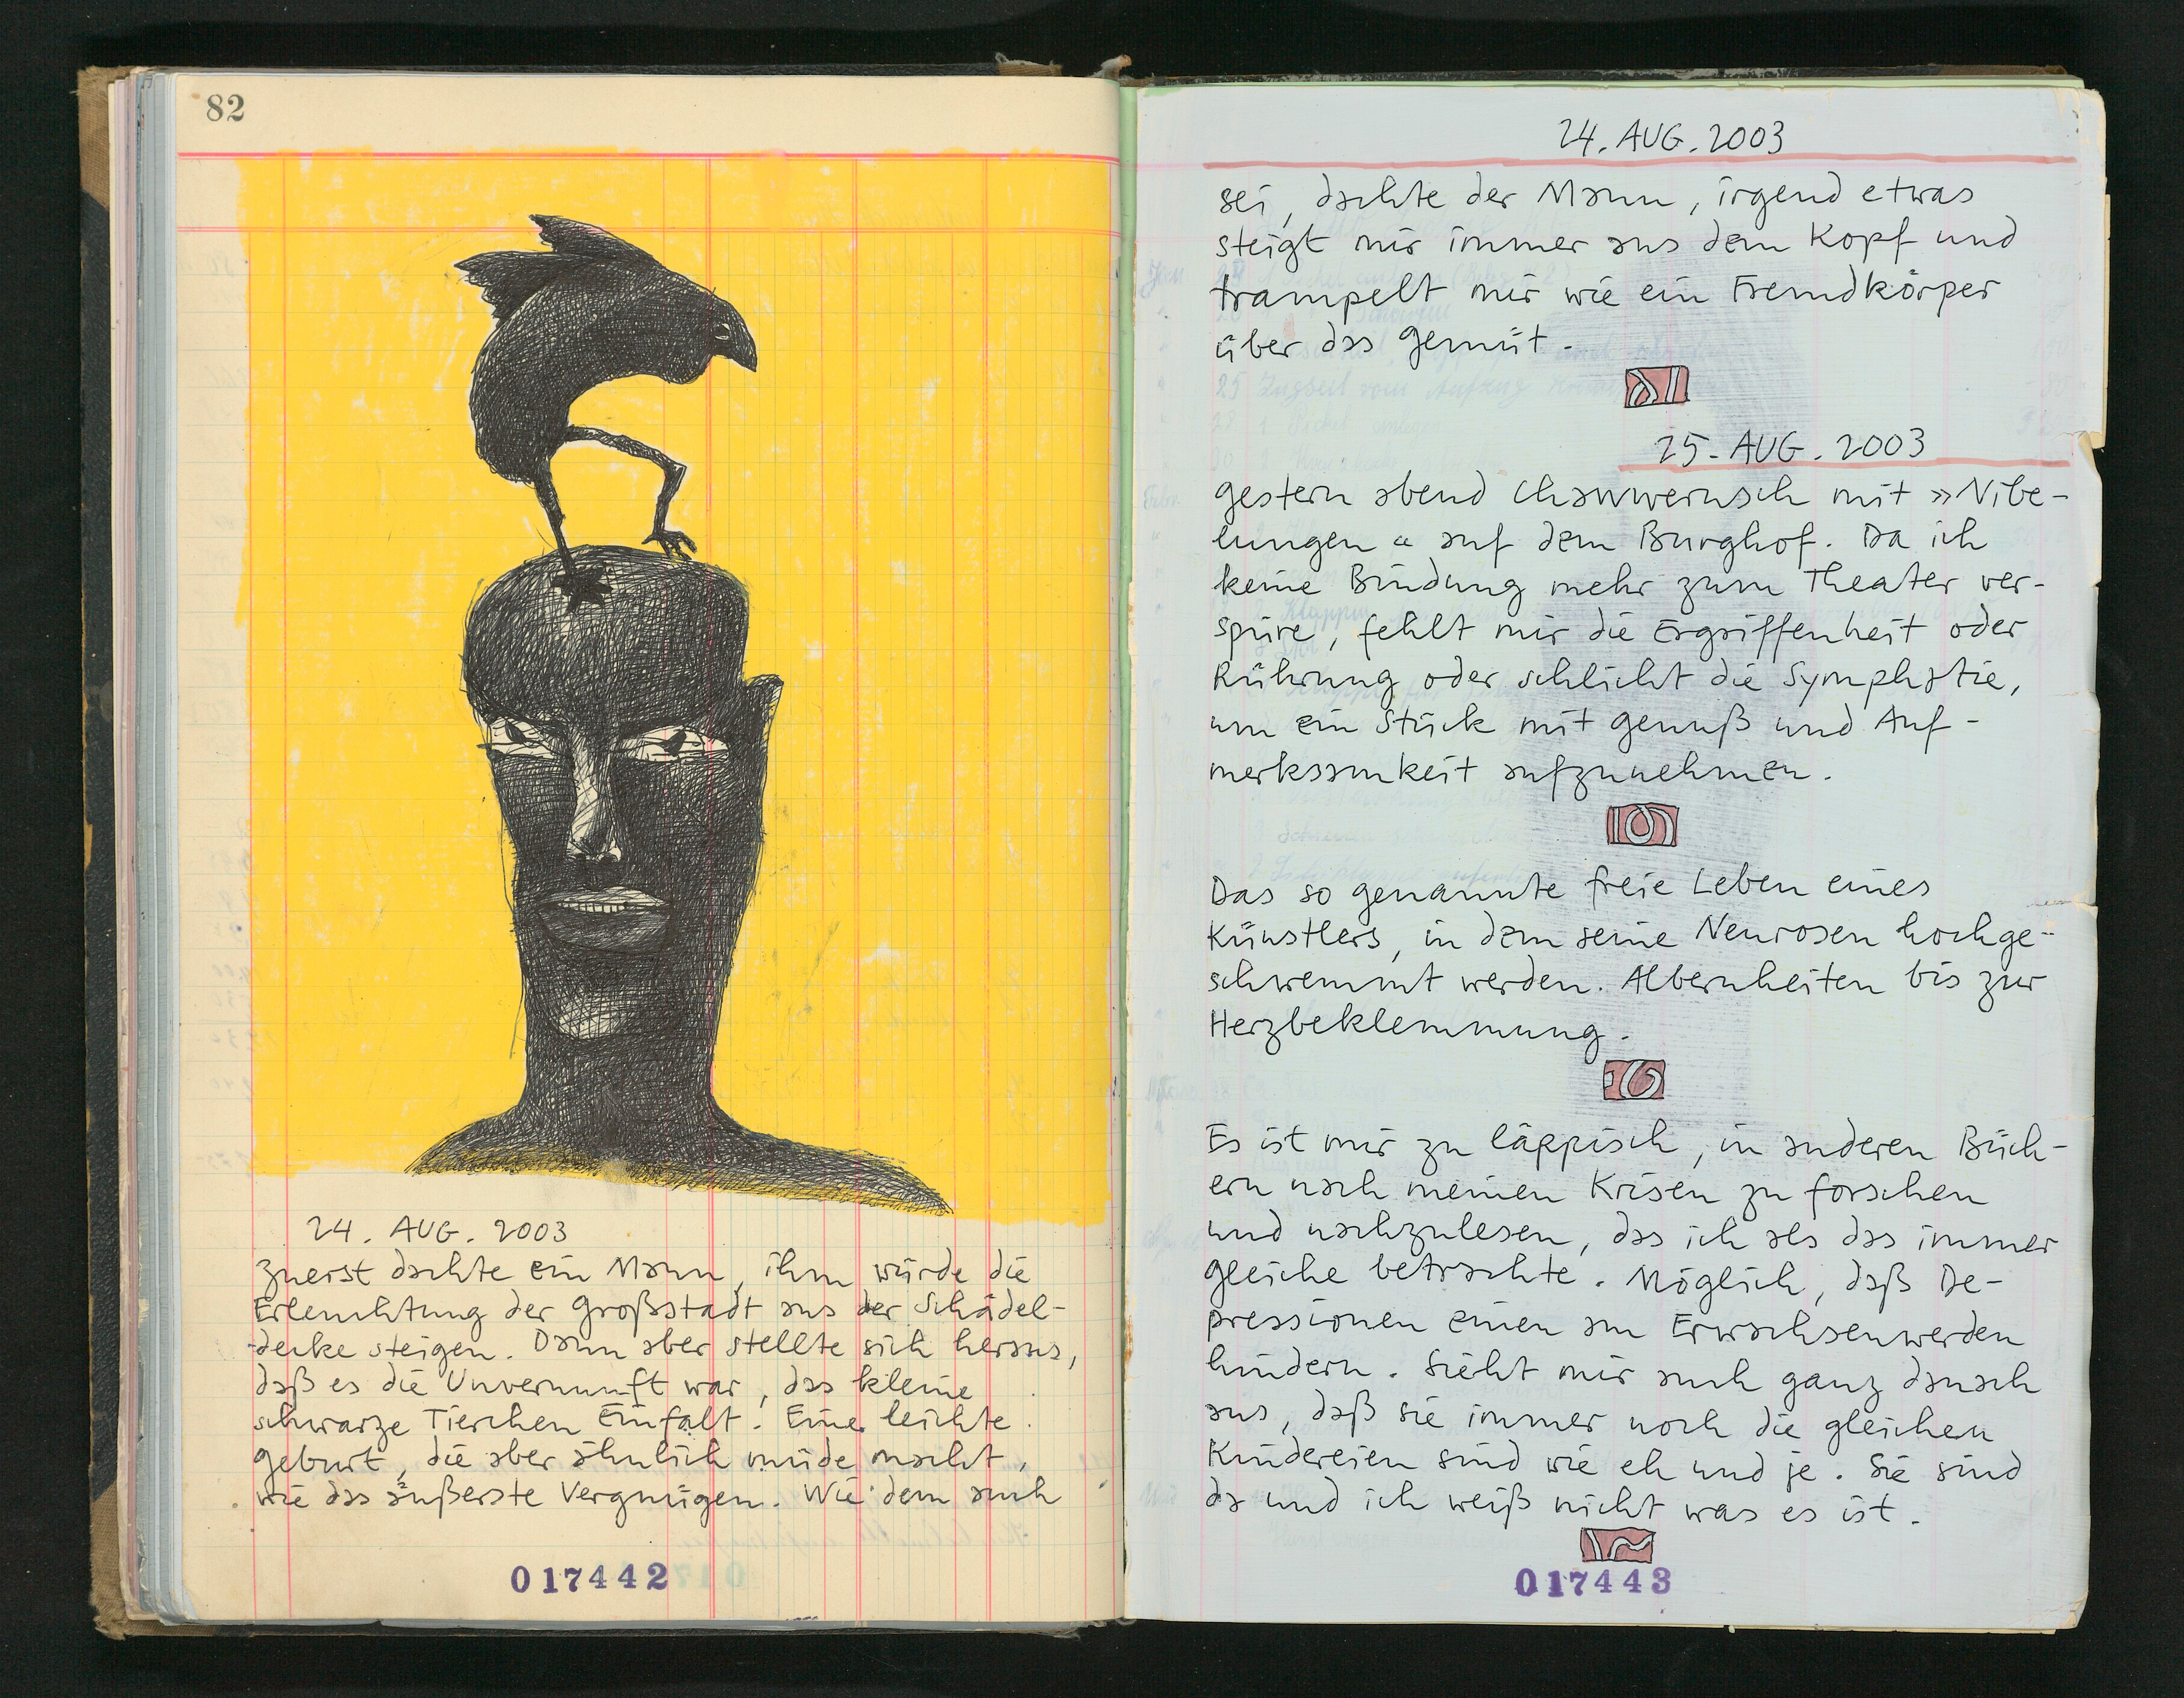 82
24. AUG. 2003
Zuerst dachte ein Mann, ihm würde die
Erleuchtung der Großstadt aus der Schädel-
decke steigen. Dann aber stellte sich heraus,
daß es die Unvernunft war, das kleine
schwarze Tierchen Einfalt. Eine leichte
Geburt, die aber ähnlich müde macht,
wie das äußerste Vergnügen. Wie dem auch
017442
24. AUG. 2003
sei, dachte der Mann, irgend etwas
steigt mir immer aus dem Kopf und
trampelt mir wie ein Fremdkörper
über das Gemüt.
25. AUG. 2003
Gestern abend Chawwerusch mit »Nibe-
lungen« auf dem Burghof. Da ich
keine Bindung mehr zum Theater ver-
spüre, fehlt mir die Ergriffenheit oder
Rührung oder schlicht die Symphatie,
um ein Stück mit Genuß und Auf-
merksamkeit aufzunehmen.
Das so genannte freie Leben eines
Künstlers, in dem seine Neurosen hochge-
schwemmt werden. Albernheiten bis zur
Herzbeklemmung.
Es ist mir zu läppisch, in anderen Büch-
ern nach meinen Krisen zu forschen
und nachzulesen, das ich als das immer
gleiche betrachte. Möglich, daß De-
pressionen einen am Erwachsenwerden
hindern. Sieht mir auch ganz danach
aus, daß sie immer noch die gleichen
Kindereien sind wie eh und je. Sie sind
da und ich weiß nicht was es ist.
017443